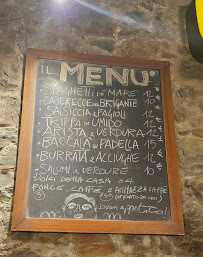 IL MENU'
SPAGHETTI DI MARE 12 €
CASERECCE DEL BRIGANTE 10 €
SALSICCIA E FAGIOLI 12 €
TRIPPA IN UMIDO 12 €
ARISTA E VERDURA 12 €
BACCALÀ IN PADELLA 15 €
BURRATA E ACCIUGHE 12 €
SALUMI E VERDURE 10 €
DOLCI DELLA CASA
PONCE, CAFFÈ, E AMMAZZACAFFÈ